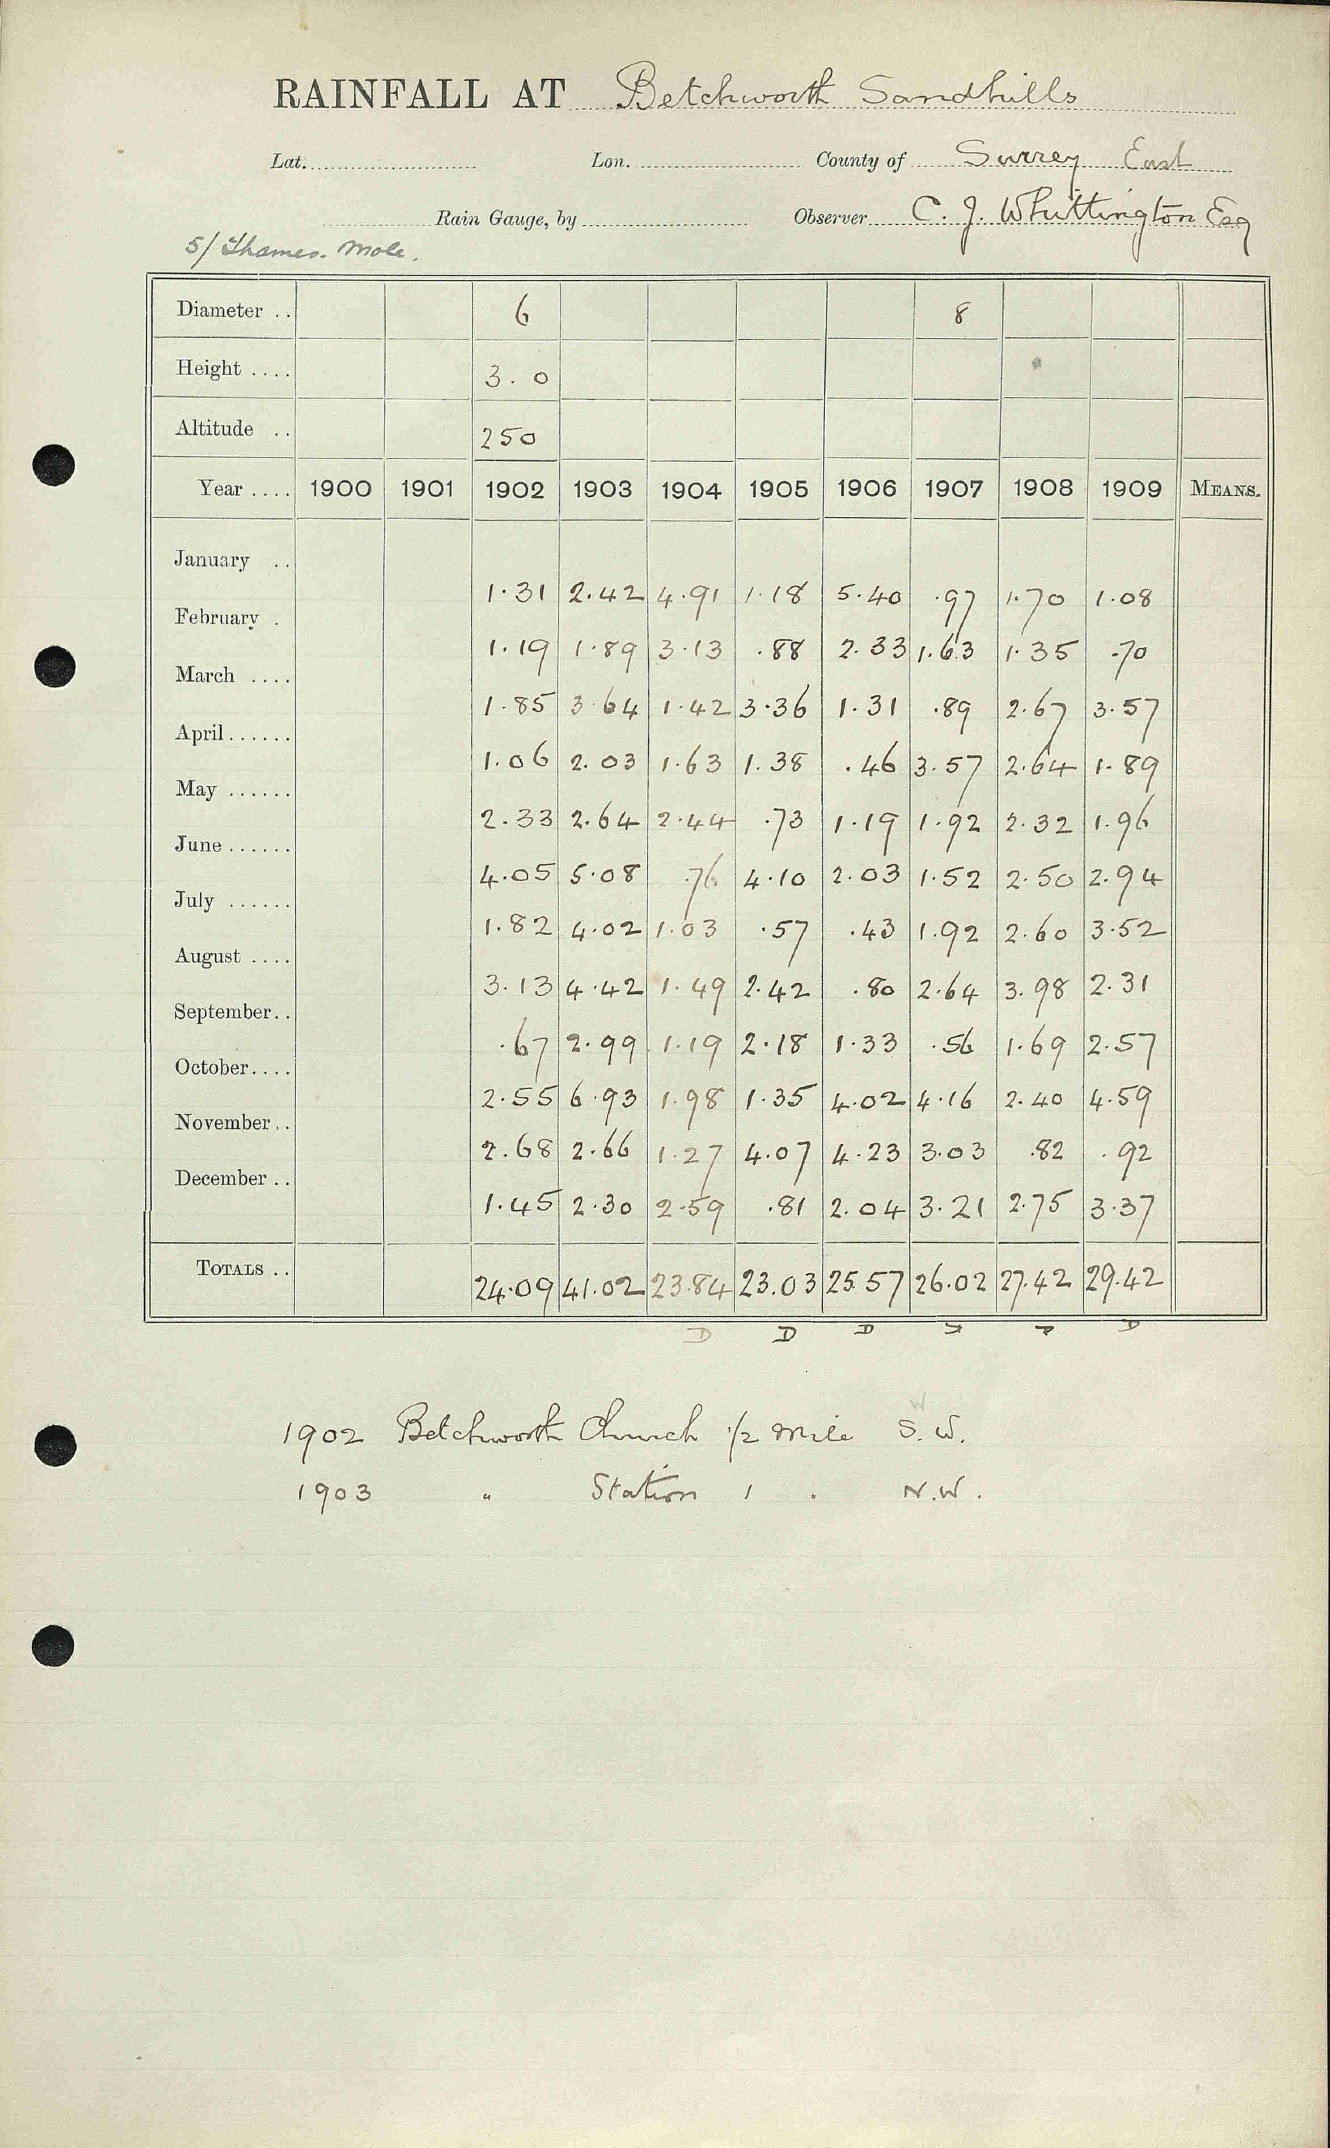 RAINFALL AT Betchworth Sandhills
Lat. Lon. County of Surrey East
Rain Gauge, by Observer C. J. Whittington Esq
5/ Thames. Mole.
Diameter .. 6 8
Height .... 3. 0
Altitude .. 250
Year .... 1900 1901 1902 1903 1904 1905 1906 1907 1908 1909 MEANS.
January .. 1.31 2.42 4.91 1.18 5.40 .97 1.70 1.08
February . 1.19 1.89 3.13 .88 2.33 1.63 1.35 .70
March .... 1.85 3.64 1.42 3.36 1.31 .89 2.67 3.57
April ...... 1.06 2.03 1.63 1.38 .46 3.57 2.64 1.89
May ...... 2.33 2.64 2.44 .73 1.19 1.92 2.32 1.96
June ...... 4.05 5.08 .76 4.10 2.03 1.52 2.50 2.94
July ...... 1.82 4.02 1.03 .57 .43 1.92 2.60 3.52
August .... 3.13 4.42 1.49 2.42 .80 2.64 3.98 2.31
September.. .67 2.99 1.19 2.18 1.33 .56 1.69 2.57
October.... 2.55 6.93 1.98 1.35 4.02 4.16 2.40 4.59
November.. 2.68 2.66 1.27 4.07 4.23 3.03 .82 .92
December .. 1.45 2.30 2.59 .81 2.04 3.21 2.75 3.37
TOTALS .. 24.09 41.02 23.84 23.03 25.57 26.02 27.42 29.42
D D D D
1902 Betchworth Church 1/2 mile S.W.
1903 " Station 1 . N.W.